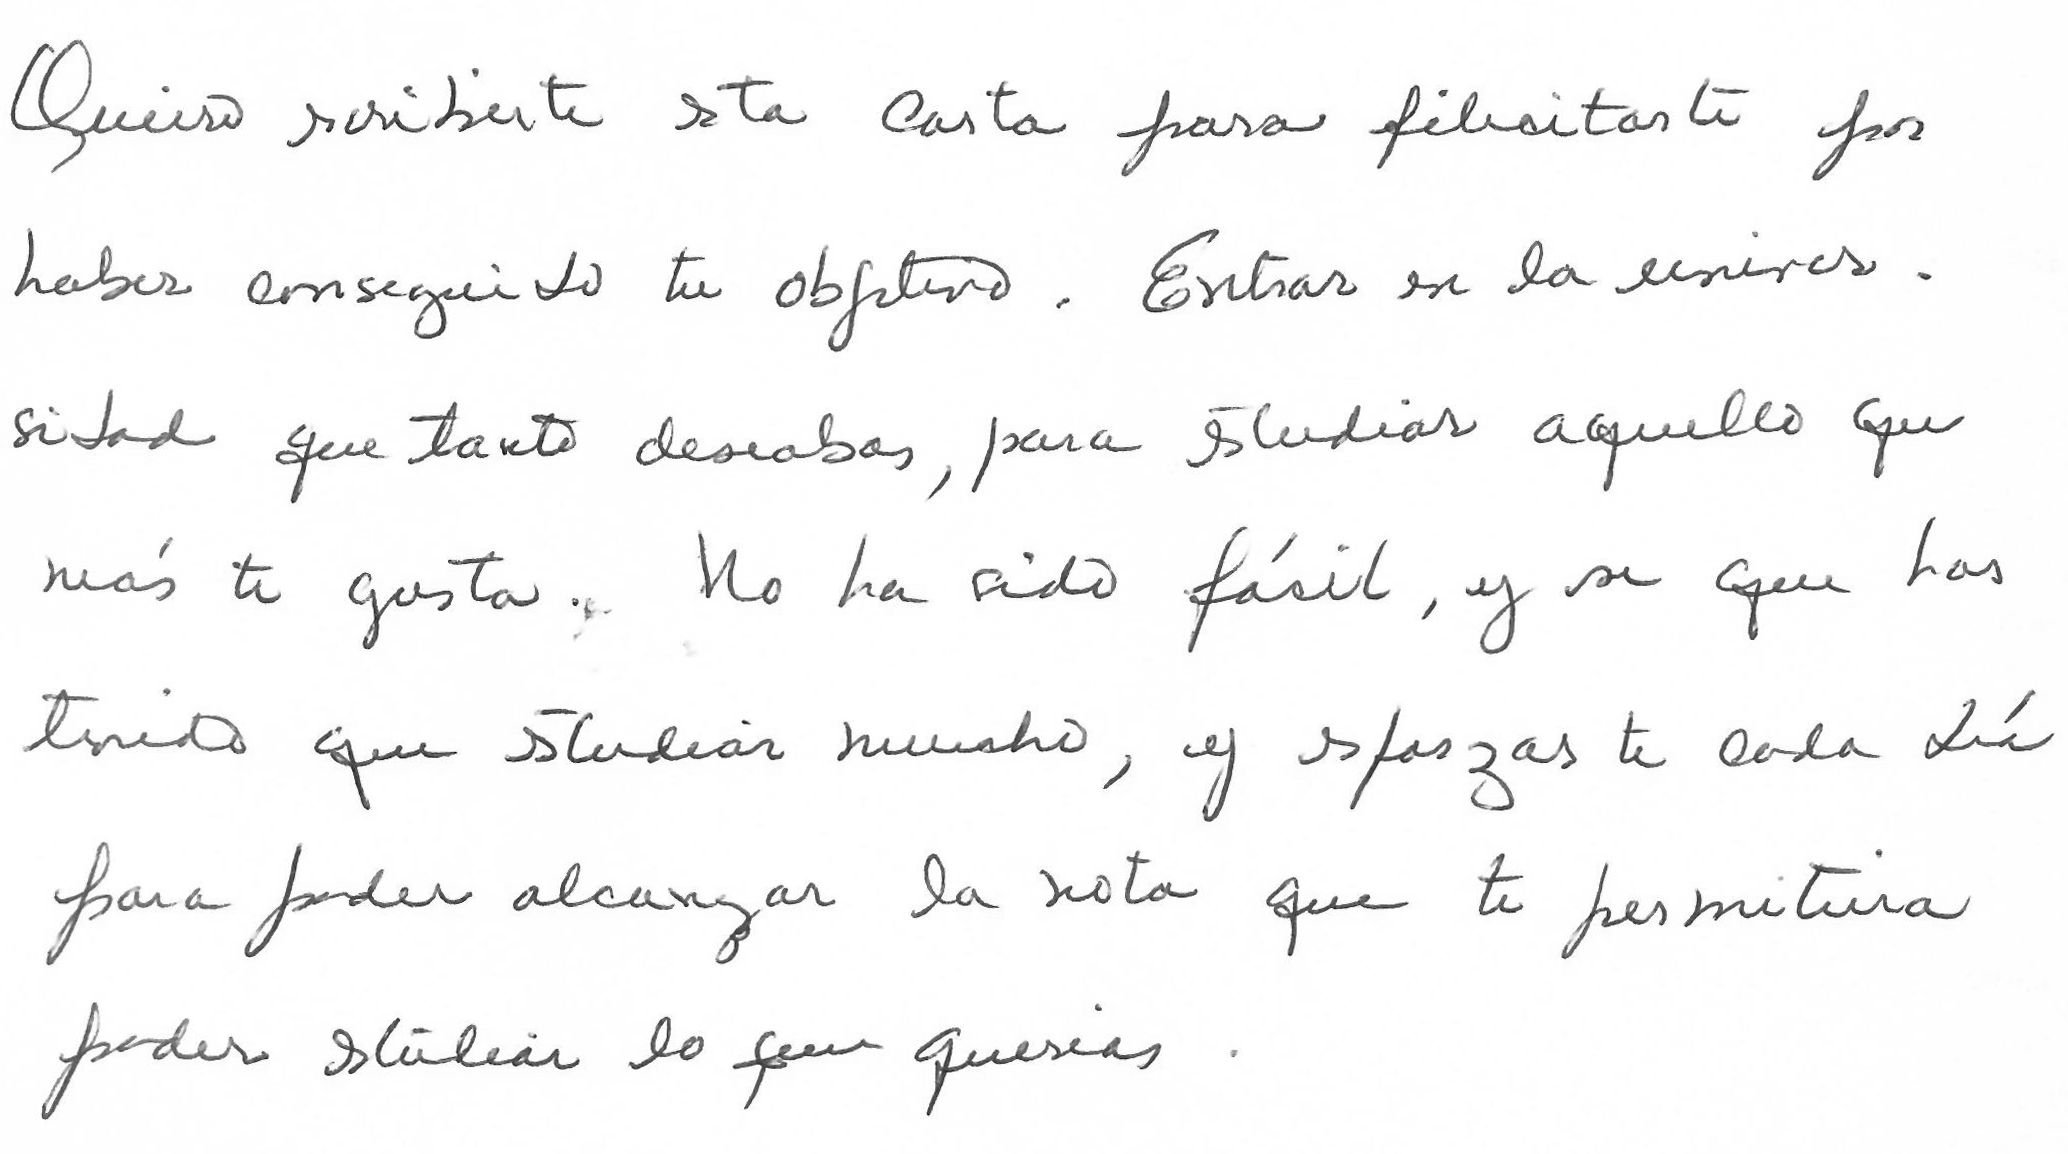 Quiero escribirte esta carta para felicitarte por
haber conseguido tu objetivo. Entrar en la univer-
sidad que tanto deseabas, para estudiar aquello que
más te gusta. No ha sido fácil, y se que has
tenido que estudiar mucho, y esforzarte cada día
para poder alcanzar la nota que te permitiera
poder estudiar lo que querias.